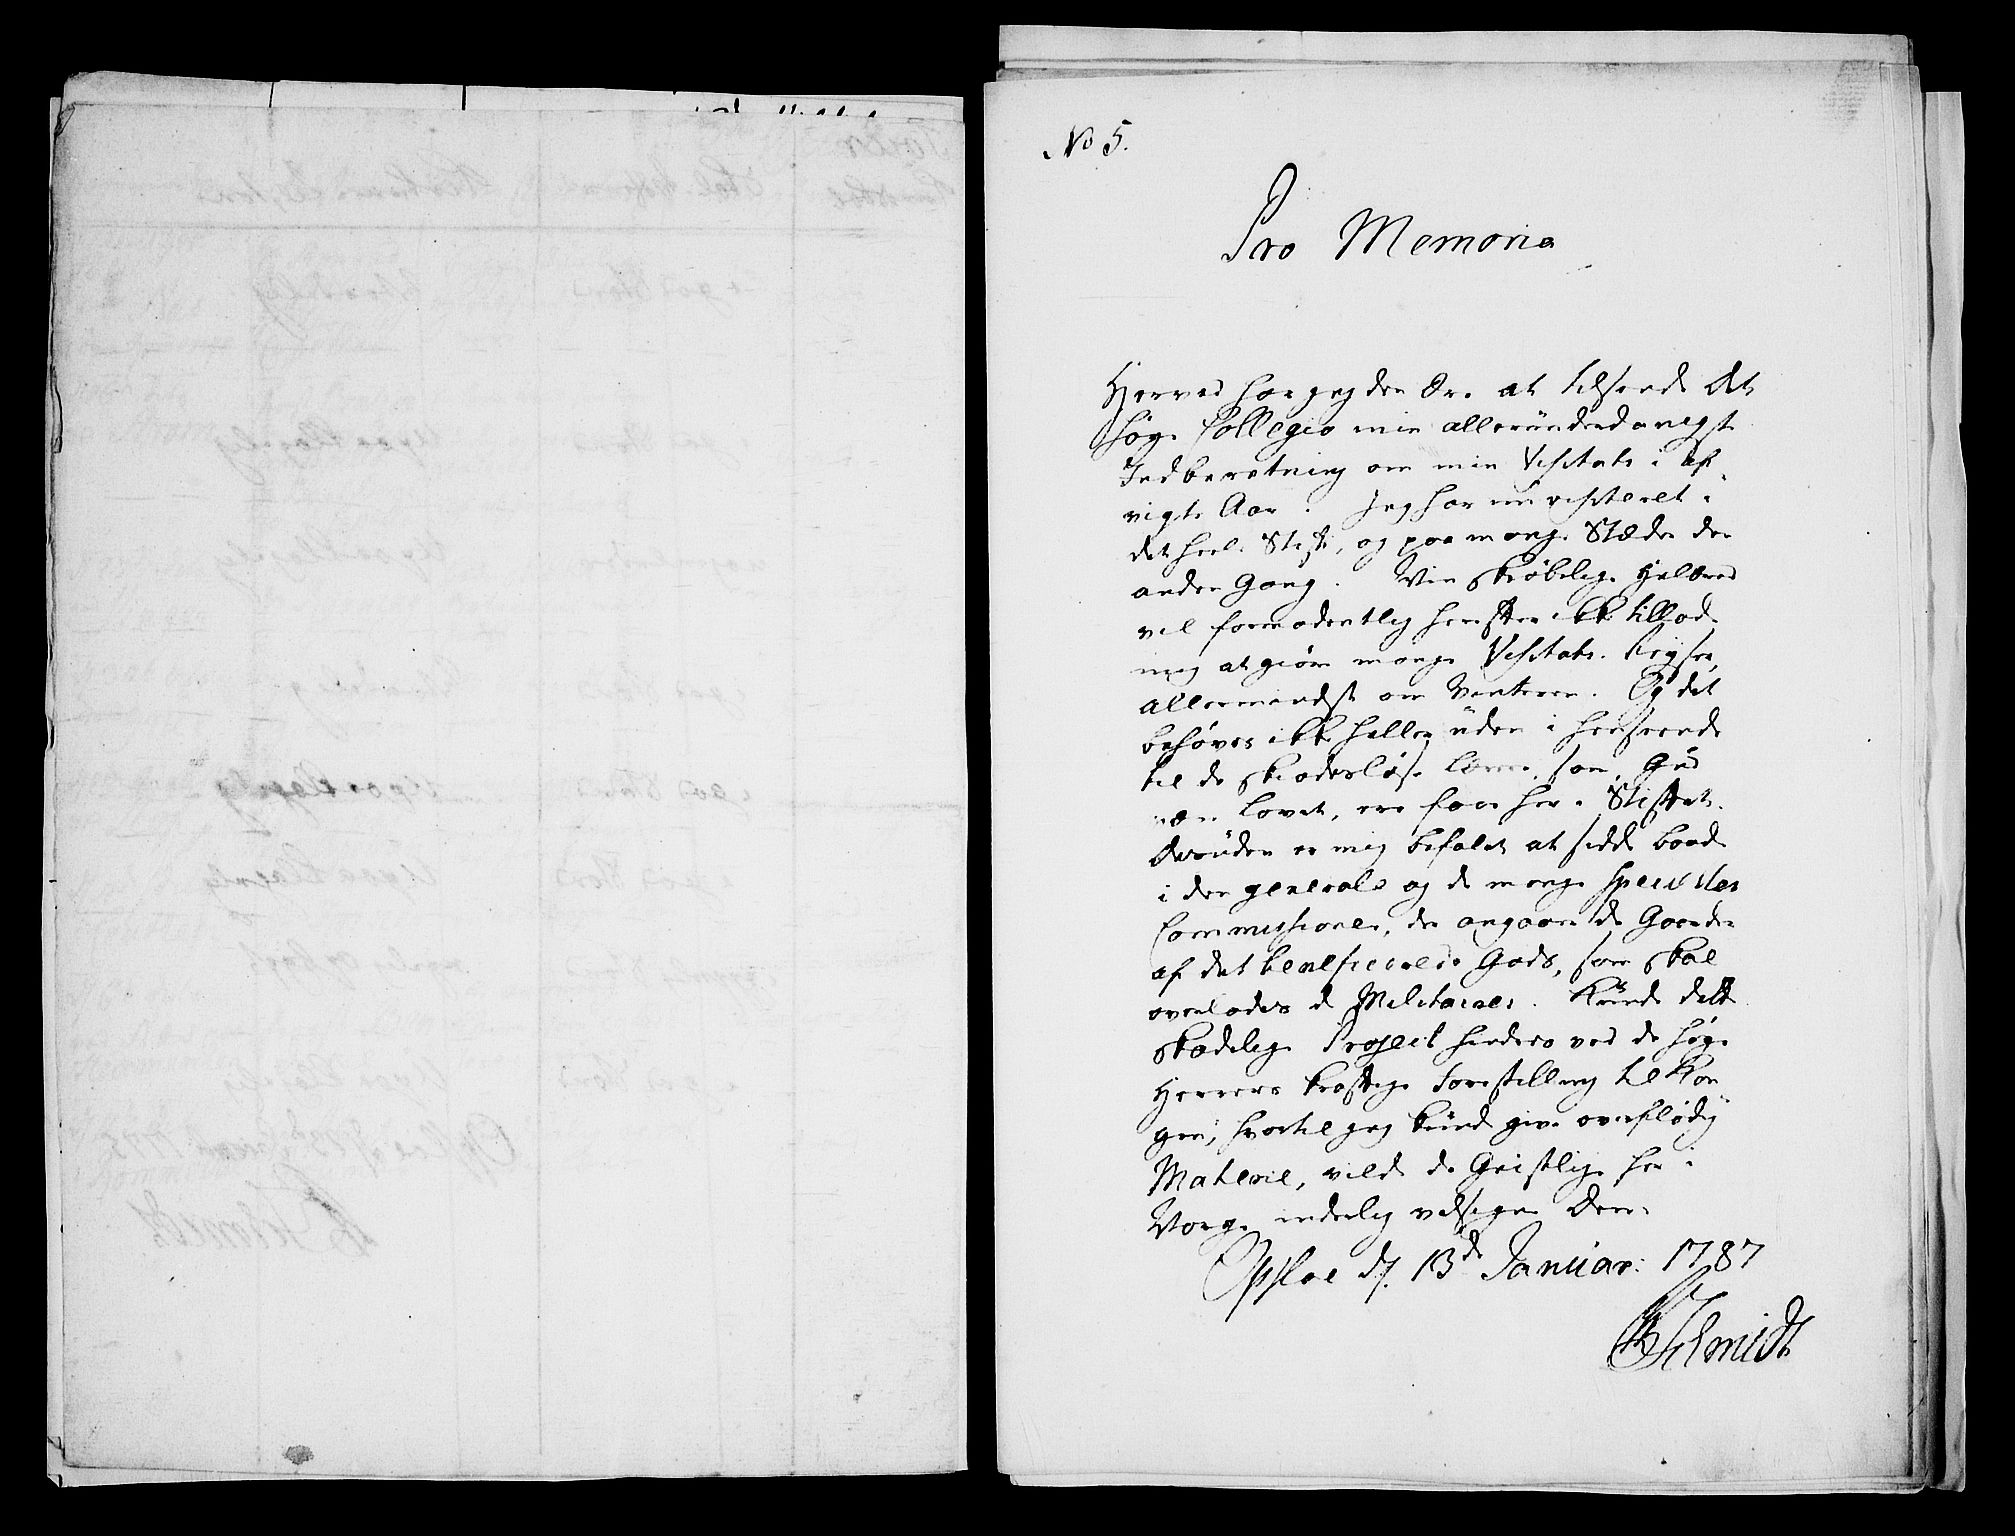 No 5.
Pro Memoria
Herved har jeg den Ære at tilsende Det
høye Collegio min alleründerdanigste
Indberetning om min Visitatz i af
vigte Aar. Jeg har nu visiteret i
det heele Stift, og paa mange Stæder den
anden Gang. Min skrøbelige Helbred
vil formodentlig herefter ikke tillade
mig at giøre mange Visitatz Reyser,
allermindst om Vinteren. Og det
behøves ikke heller üden i Henseende
til de skiødesløse Lærere, som, Gud
være lovet, ere faae her i Stiftet.
Desüden er mig befalet at sidde baade
i den generale og de mange Speciales
Commissioner, der angaaer de Gaarder
af det beneficerede Gods, som skal
overlades de Militaires. Kunde dette
skadelige Project hindres ved de høye
Herrers kraftige Forestilling til Kon
gen, hvortil jeg kunde give overflødig
Materie, vilde de Geistlige her i
Norge inderlig velsigne Dem.
Opsloe d. 13de Januar: 1787
Schmidt